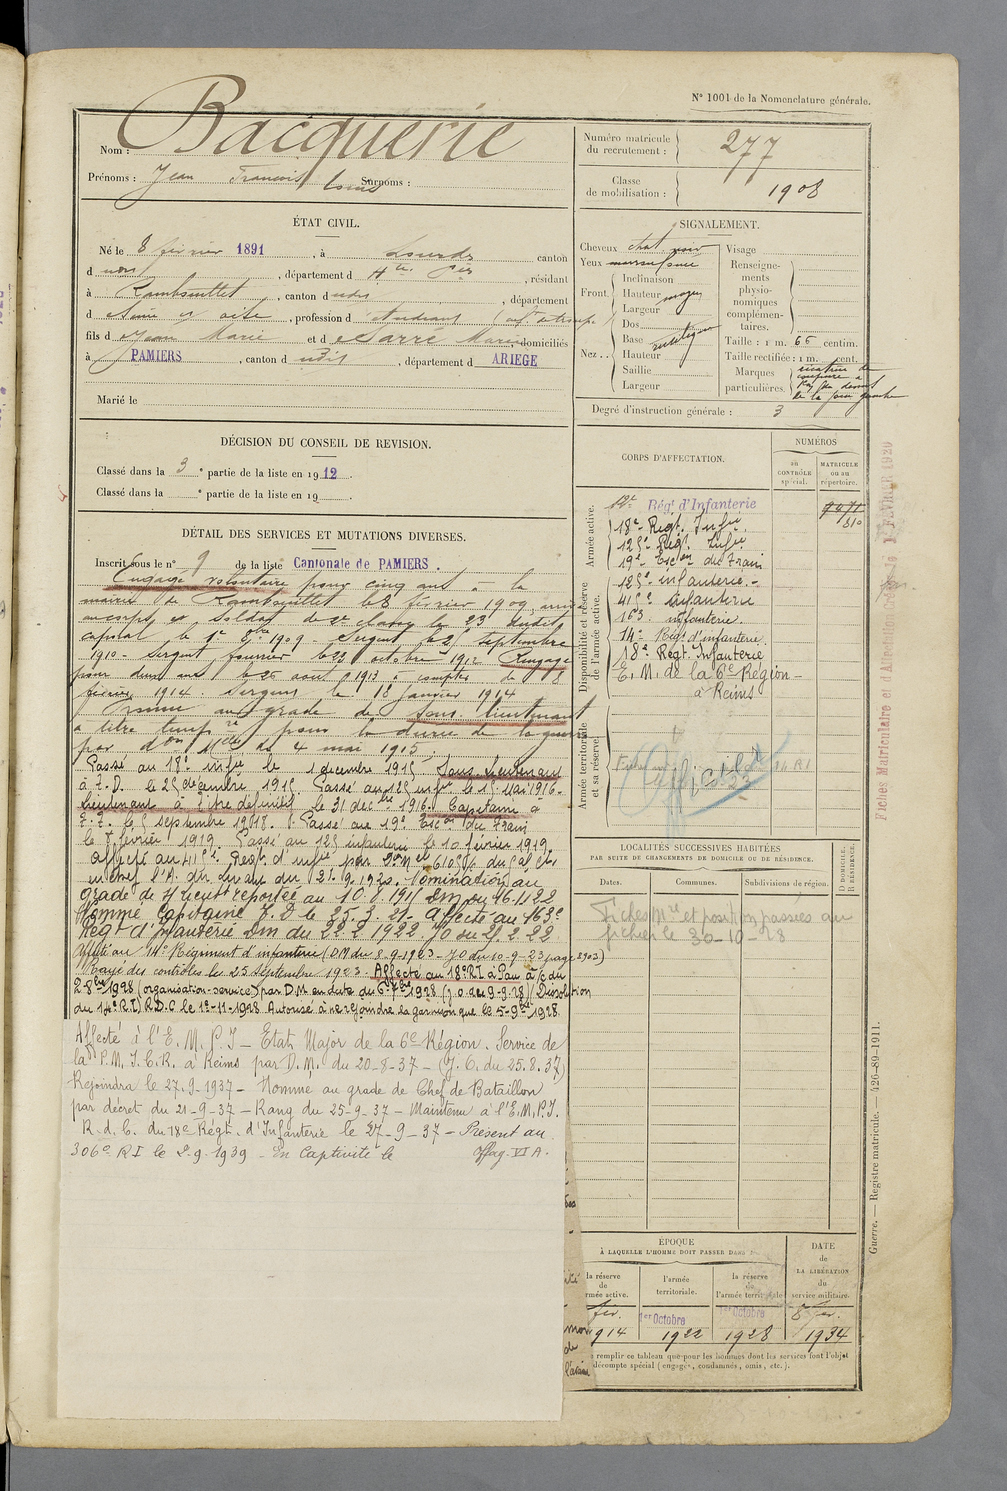 N° 1001 de la Nomenclature générale.
Nom : Bacquerie
Prénoms : Jean François Louis Surnoms :
Numéro matricule du recrutement : 277
Classe de mobilisation : 1908
ÉTAT CIVIL.
Né le 8 février 1891, à Lourdes, canton
d udit, département d Htes Pées, résidant
à Rambouillet, canton dudit, département
d Seine et oise, profession d'étudiant
fils d Jean Marie et d Sarré Marie, domiciliés
à PAMIERS, canton d udit, département d ARIEGE
Marié le
SIGNALEMENT.
Cheveux chat. noir
Yeux
Front. Inclinaison
Hauteur moyen
Largeur
Nez.. Dos
Base rectiligne
Hauteur
Saillie
Largeur
Visage
Renseignements physionomiques complémentaires.
Taille : 1 m. 66 centim.
Taille rectifiée : 1 m. cent.
Marques particulières. cicatrice de
la joue gauche
Degré d'instruction générale : 3
DÉCISION DU CONSEIL DE REVISION.
Classé dans la 3e partie de la liste en 1912.
Classé dans la e partie de la liste en 19
DÉTAIL DES SERVICES ET MUTATIONS DIVERSES.
Inscrit sous le n° 9 de la liste Cantonale de PAMIERS.
Engagé volontaire pour cinq ans à la
mairie de Rambouillet le 8 février 1909 arrivé
au corps et soldat de 2e classe le 23 dudit
caporal le 1er 8bre 1909 - Sergent le 25 septembre
1910 - Sergent fourrier le 23 octobre 1912 Rengagé
pour deux ans le 26 aout 1913 à compter du 8
février 1914. Sergent le 18 janvier 1914
Promu au grade de Sous lieutenant
à titre tempre pour la durée de la guerre
par don Mlle du 4 mai 1915.
Passé au 18e infie le 1 décembre 1915 Sous Lieutenant
à T.D. le 25 décembre 1915. Passé au 125 infie le 15 Mai 1916.
Lieutenant à titre définitif le 31 decbre 1916. Capitaine à
T.T. le 5 septembre 1918. Passé au 19e Escon du Train
le 8 février 1919. Passé au 125 infanterie le 10 février 1919.
affecté au 415e Regt d'infie par
en chef l'A. du du 21.9.1920. Nomination au
grade de S/Lieut reportée au 10.8.1915 Dm du 16.1.1922
Nommé Capitaine T.D le 25.3.21 - Affecté au 163e
Regt d'Infanterie Dm du 22.2.1922. JO du 25.2.22
Affecté au 14e Régiment d'infanterie (DM du 8-9-1923 - JO du 10-9-23 page 8902)
Rayé des contrôles le 25 Septembre 1923 - Affecté au 18e RI à Pau à /c du
2-8bre 1928 (organisation-service) par D.M en date du 6-7bre 1928 (J.O. du 9-9-28) (Dissolution
du 14e R.I.) R.D.C le 1er-11-1928 Autorisé à ne rejoindre la garnison que le 5-9bre 1928.
Affecté à l'E.M.P.I - Etat Major de la 6e Région. Service de
la P.M.I.C.R. à Reims par D.M. du 20-8-37 - (J.O. du 25.8.37)
Rejoindra le 27-9-1937 - Nommé au grade de Chef de Bataillon
par décret du 21-9-37 - Rang du 25-9-37 - Maintenu à l'E.M.P.I.
R.d.C. du 18e Régt. d'Infanterie le 27-9-37 - Présent au
306e RI le 2-9-1939 - En Captivité le Oflag. VI A.
CORPS D'AFFECTATION.
NUMÉROS
au CONTRÔLE spécial.
MATRICULE ou au répertoire.
Armée active.
Disponibilité et réserve de l'armée active.
Armée territoriale et sa réserve
12e Rég.t d'Infanterie
810
18e Regt. Infie
125e Regt. Infie
19e Escon du Train
125e infanterie.-
415e Infanterie
163 infanterie.
14e Régt d'infanterie
18e Regt. Infanterie
E.M. de la 6e Région -
à Reims
LOCALITÉS SUCCESSIVES HABITÉES
PAR SUITE DE CHANGEMENTS DE DOMICILE OU DE RÉSIDENCE.
Dates.
Communes.
Subdivisions de région.
D DOMICILE, R RÉSIDENCE.
Fiches Mle et position passées au
fichier le 30-10-28
ÉPOQUE
À LAQUELLE L'HOMME DOIT PASSER DANS :
la réserve de l'armée active.
l'armée territoriale.
la réserve de l'armée territoriale
DATE de LA LIBÉRATION du service militaire.
fév. 1914
1er Octobre 1922
1er Octobre 1928
8 fév. 1934
remplir ce tableau que pour les hommes dont les services font l'objet
décompte spécial (engagés, condamnés, omis, etc.).
Guerre. — Registre matricule. — 426-89-1911.
Fiches Matriculaire et d'Affectation
FÉVRIER 1920